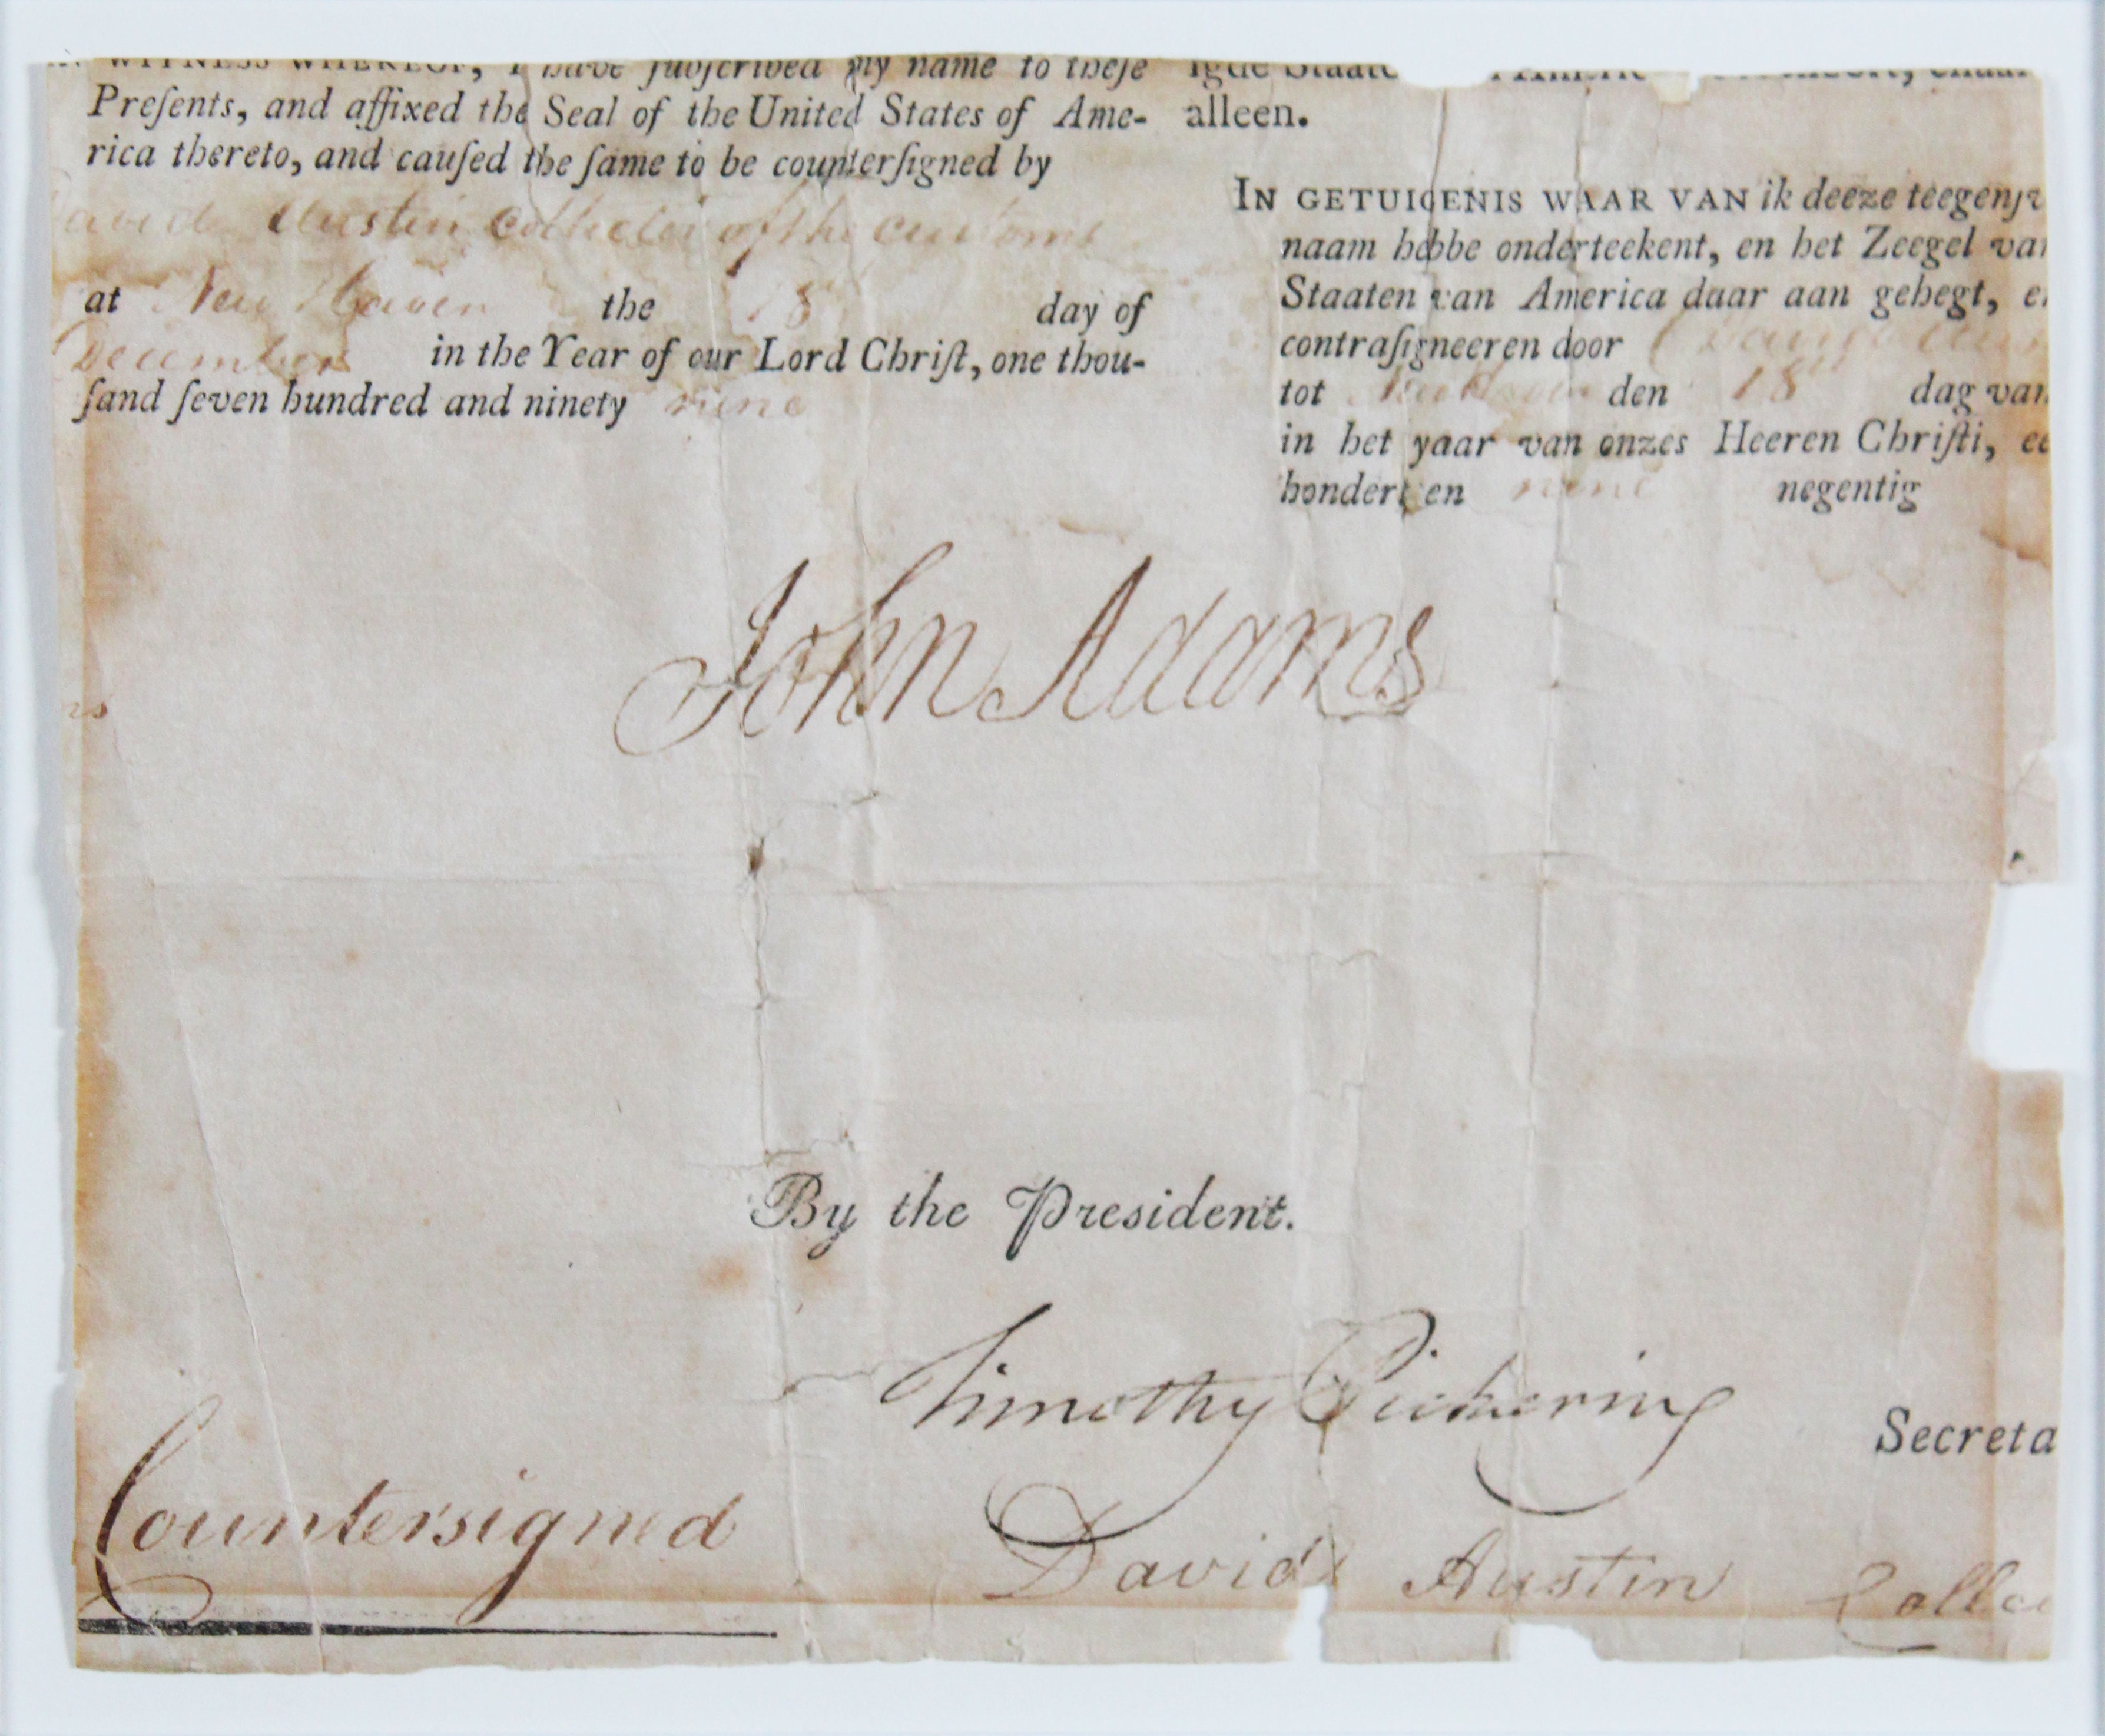 IN WITNESS WHEREOF, I have ſubſcribed my name to theſe
Preſents, and affixed the Seal of the United States of Ame-
rica thereto, and cauſed the ſame to be counterſigned by
David Austin Collector of the customs
at New Haven the 18 day of
December in the Year of our Lord Chriſt, one thou-
ſand ſeven hundred and ninety nine
alleen.
IN GETUIGENIS WAAR VAN ik deeze teegenſ
naam hebbe onderteekent, en het Zeegel van
Staaten van America daar aan gehegt, e
contraſigneeren door David Aus
tot New Haven den 18 dag van
in het yaar van onzes Heeren Chriſti, ee
hondert en nine negentig
John Adams
By the President.
Timothy Pickering
Secreta
Countersigned David Austin Collec